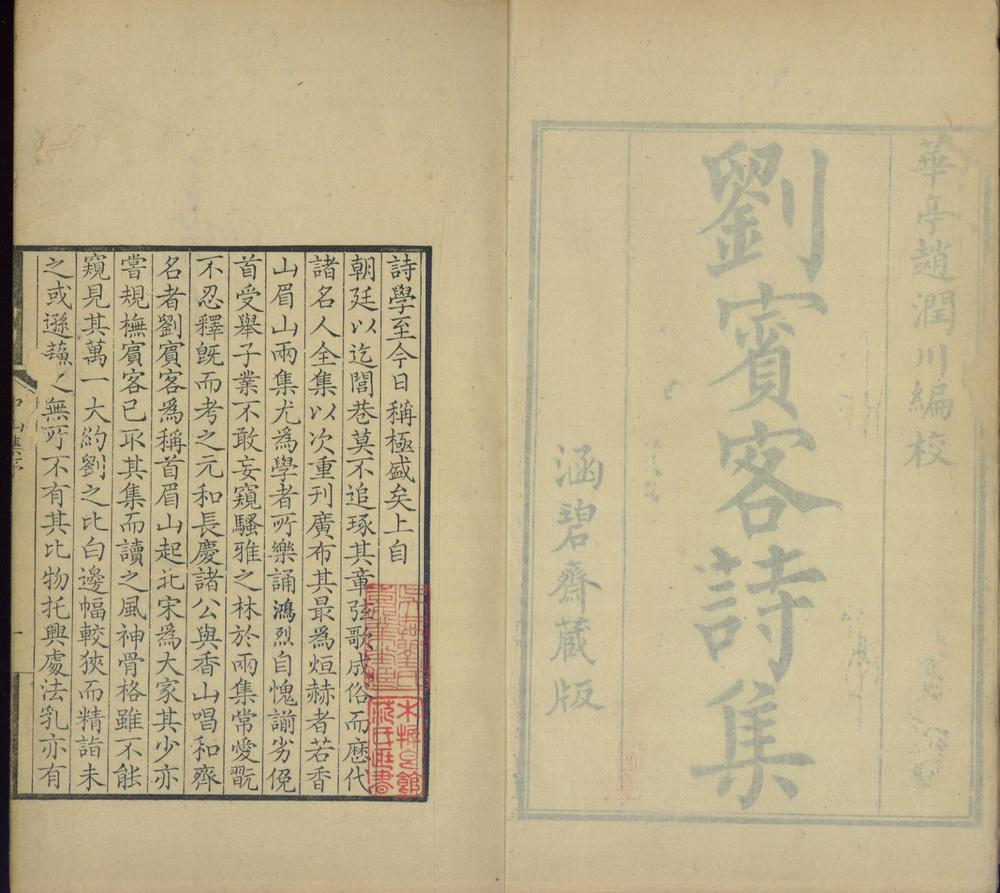 華亭趙潤川編校
劉賓客詩集
涵碧齋藏版
詩學至今日稱極盛矣上自
朝廷以迄閭巷莫不追琢其章弦歌成俗而歷代
諸名人全集以次重刊廣布其最為烜赫者若香
山眉山兩集尤為學者所樂誦鴻烈自愧謭劣俛
首受舉子業不敢妄窺騷雅之林於兩集常愛翫
不忍釋旣而考之元和長慶諸公與香山唱和齊
名者劉賓客為稱首眉山起北宋為大家其少亦
嘗規橅賓客已取其集而讀之風神骨格雖不能
窺見其萬一大約劉之比白邊幅較狹而精詣未
之或遜蘇之無所不有其比物托興處法乳亦有
山集序
一